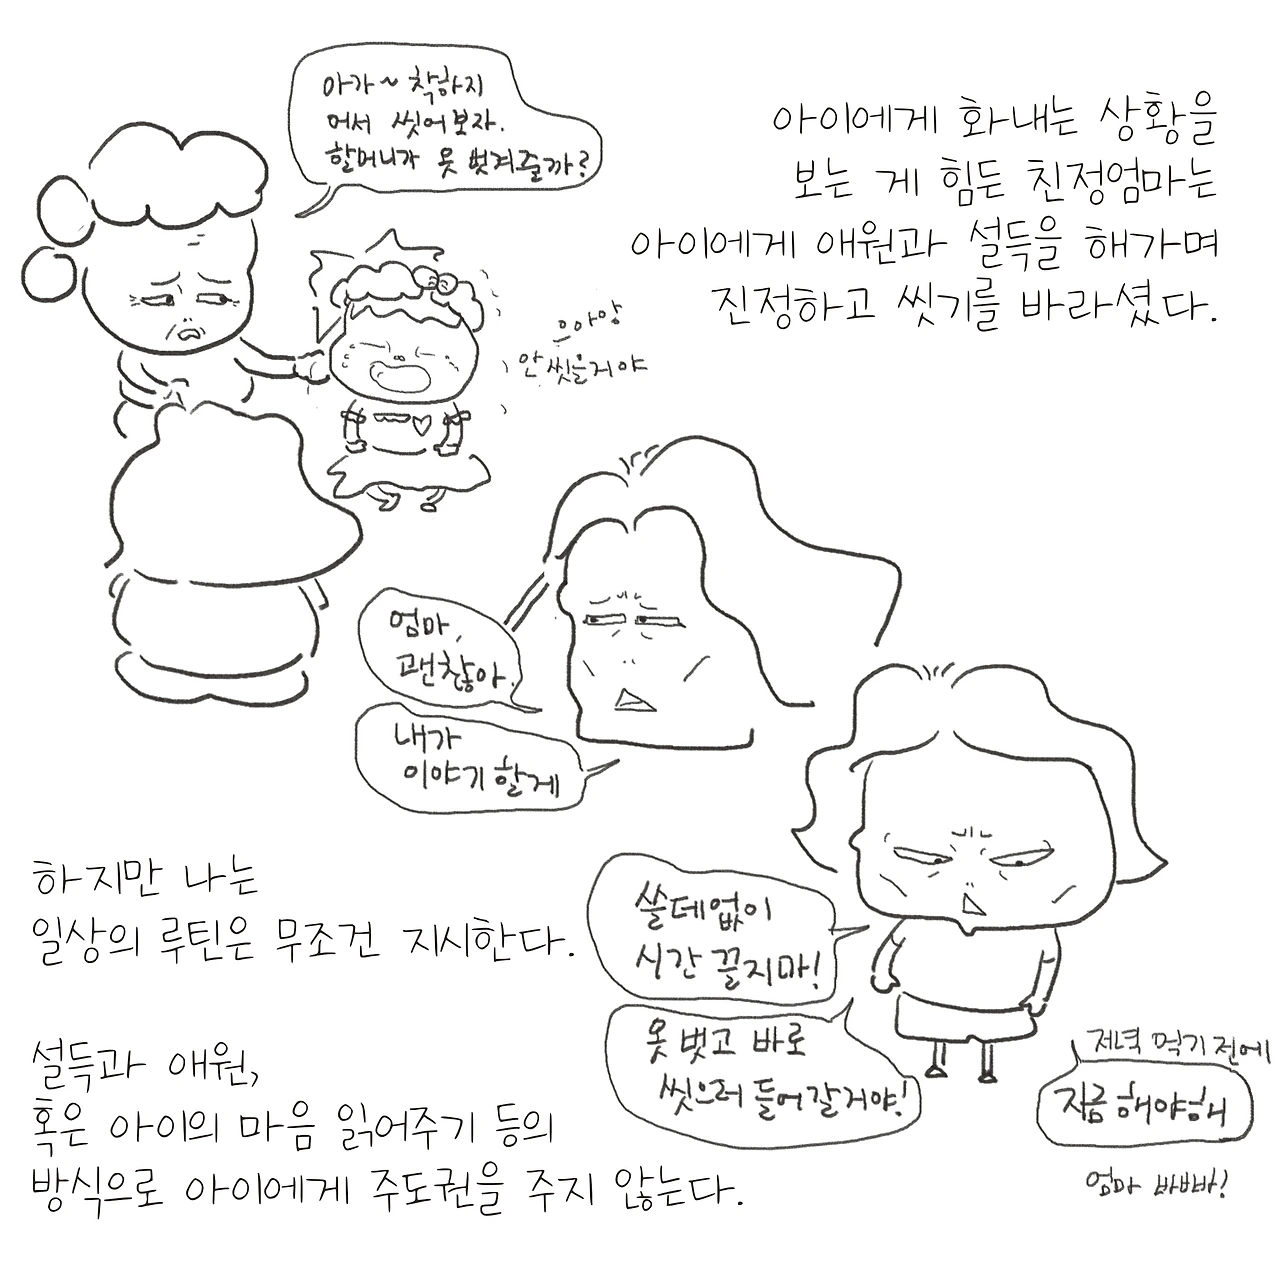 아가~ 착하지
어서 씻어보자.
할머니가 옷 벗겨줄까?
아이에게 화내는 상황을
보는 게 힘든 친정엄마는
아이에게 애원과 설득을 해가며
진정하고 씻기를 바라셨다.
으아앙
안 씻을거야
엄마,
괜찮아.
내가
이야기 할게
하지만 나는
일상의 루틴은 무조건 지시한다.
쓸데없이
시간 끌지마!
옷 벗고 바로
씻으러 들어갈거야!
저녁 먹기 전에
지금 해야해
엄마 바빠!
설득과 애원,
혹은 아이의 마음 읽어주기 등의
방식으로 아이에게 주도권을 주지 않는다.